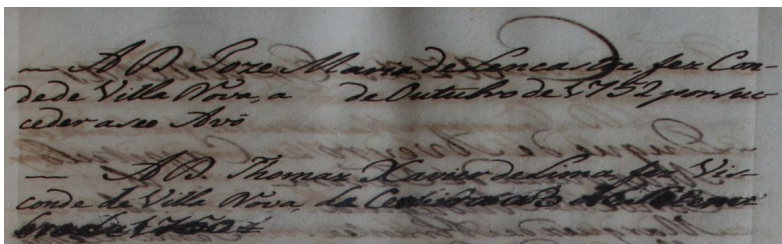 — A D. Joze Maria de Lencastre fez Con-
de de Villa Nova, a de Outubro de 1752 por suc
ceder a seo Avô
— A D. Thomaz Xavier de Lima fez Vis-
conde de Villa Nova, da Cerveira a